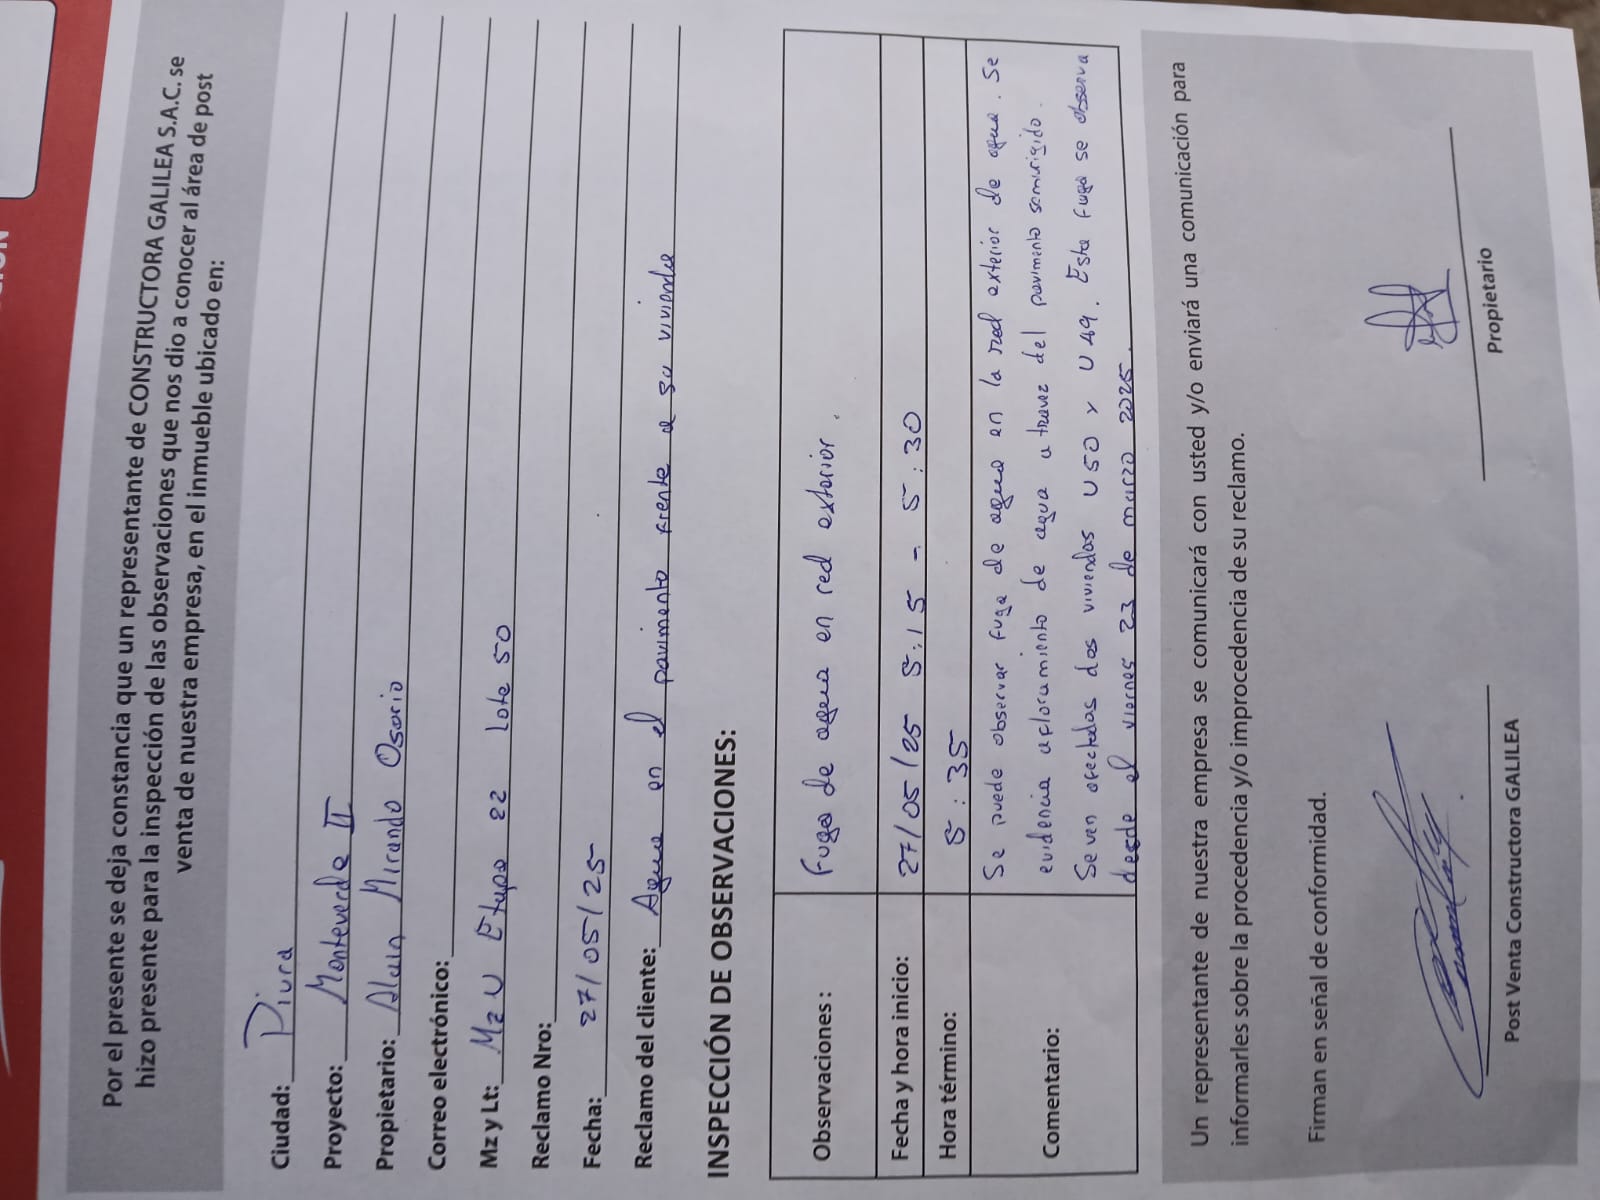 Por el presente se deja constancia que un representante de CONSTRUCTORA GALILEA S.A.C. se
hizo presente para la inspección de las observaciones que nos dio a conocer al área de post
venta de nuestra empresa, en el inmueble ubicado en:
Ciudad: Piura
Proyecto: Monteverde II
Propietario: Alain Miranda Osorio
Correo electrónico:
Mz y Lt: Mz U Etapa 22 lote 50
Reclamo Nro:
Fecha: 27/05/25
Reclamo del cliente: Agua en el pavimento frente a su vivienda
INSPECCIÓN DE OBSERVACIONES:
Observaciones : Fuga de agua en red exterior.
Fecha y hora inicio: 27/05/25 5:15 - 5:30
Hora término: 5:35
Comentario: Se puede observar fuga de agua en la red exterior de agua. Se
evidencia afloramiento de agua a travez del pavimento semirigido.
Se ven afectadas dos viviendas U50 y U49. Esta fuga se observa
desde el viernes 23 de marzo 2025.
Un representante de nuestra empresa se comunicará con usted y/o enviará una comunicación para
informarles sobre la procedencia y/o improcedencia de su reclamo.
Firman en señal de conformidad.
Post Venta Constructora GALILEA
Propietario